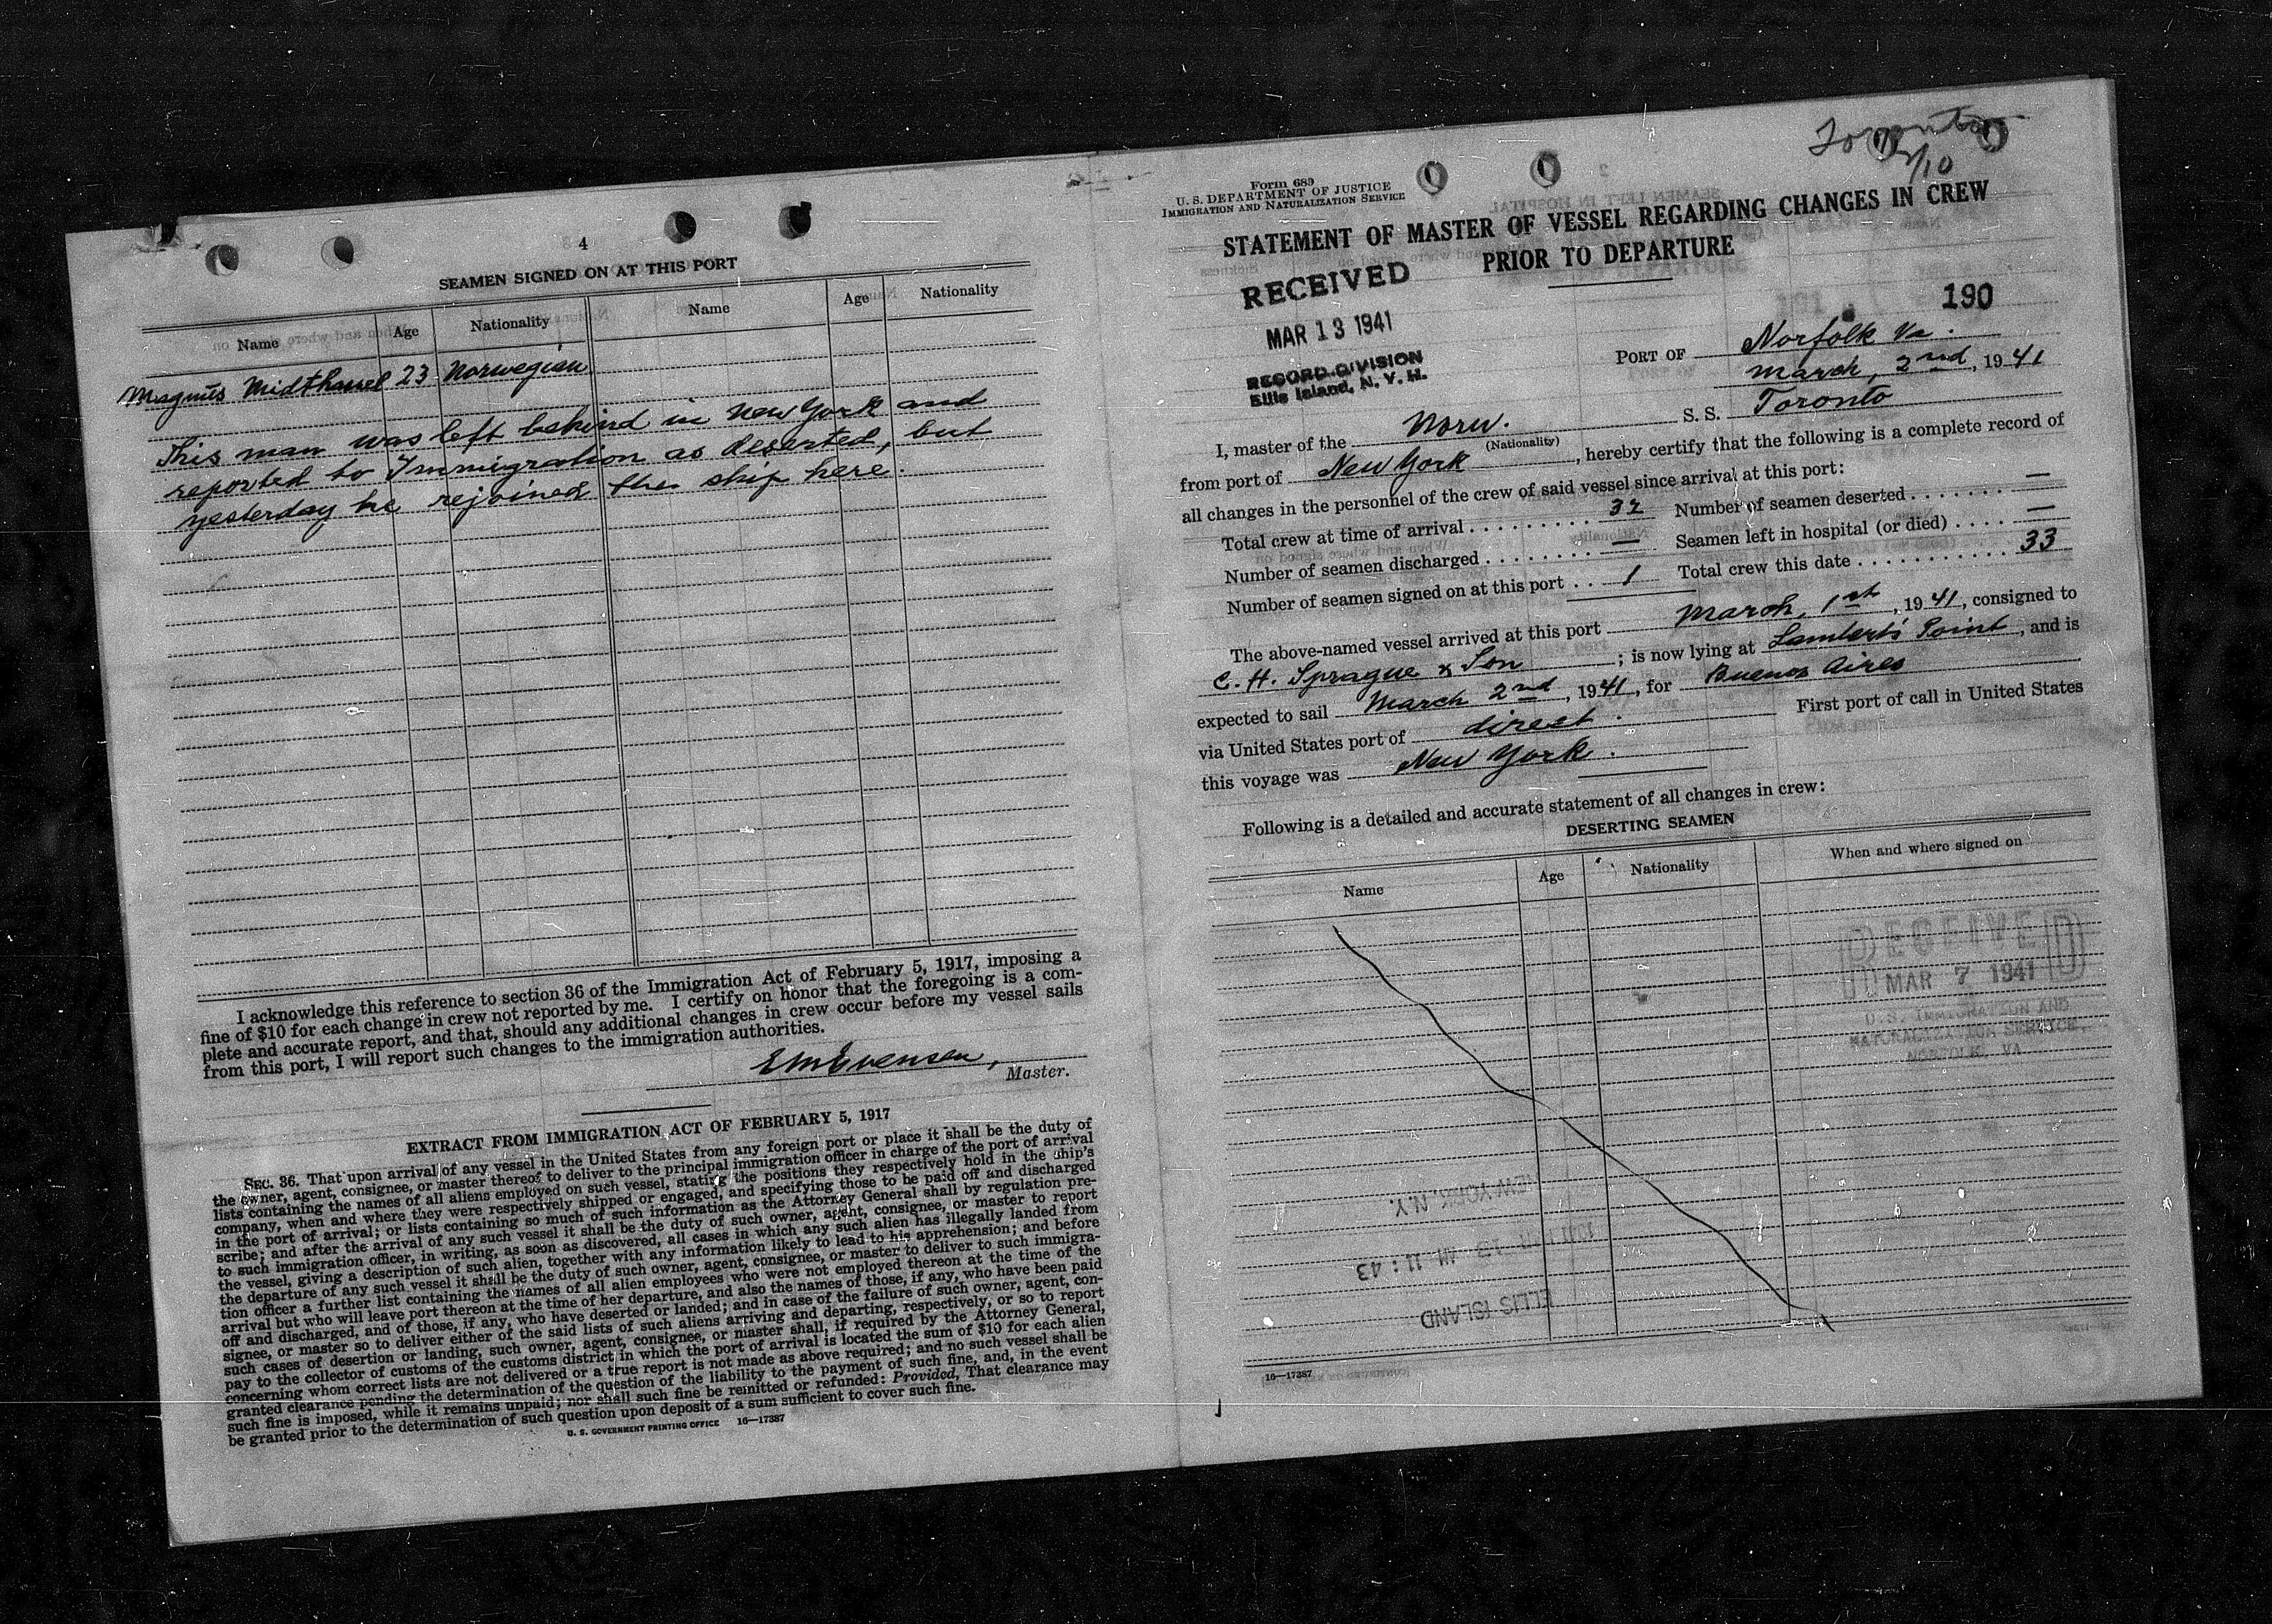 4
SEAMEN SIGNED ON AT THIS PORT
Name Age Nationality Name Age Nationality
Magnus Midthassel 23 Norwegian
This man was left behind in New York and
reported to Immigration as deserted, but
yesterday he rejoined the ship here.
I acknowledge this reference to section 36 of the Immigration Act of February 5, 1917, imposing a
fine of $10 for each change in crew not reported by me. I certify on honor that the foregoing is a com-
plete and accurate report, and that, should any additional changes in crew occur before my vessel sails
from this port, I will report such changes to the immigration authorities.
EMEvensen,
Master.
EXTRACT FROM IMMIGRATION ACT OF FEBRUARY 5, 1917
SEC. 36. That upon arrival of any vessel in the United States from any foreign port or place it shall be the duty of
the owner, agent, consignee, or master thereof to deliver to the principal immigration officer in charge of the port of arrival
lists containing the names of all aliens employed on such vessel, stating the positions they respectively hold in the ship's
company, when and where they were respectively shipped or engaged, and specifying those to be paid off and discharged
in the port of arrival; or lists containing so much of such information as the Attorney General shall by regulation pre-
scribe; and after the arrival of any such vessel it shall be the duty of such owner, agent, consignee, or master to report
to such immigration officer, in writing, as soon as discovered, all cases in which any such alien has illegally landed from
the vessel, giving a description of such alien, together with any information likely to lead to his apprehension; and before
the departure of any such vessel it shall be the duty of such owner, agent, consignee, or master to deliver to such immigra-
tion officer a further list containing the names of all alien employees who were not employed thereon at the time of the
arrival but who will leave port thereon at the time of her departure, and also the names of those, if any, who have been paid
off and discharged, and of those, if any, who have deserted or landed; and in case of the failure of such owner, agent, con-
signee, or master so to deliver either of the said lists of such aliens arriving and departing, respectively, or so to report
such cases of desertion or landing, such owner, agent, consignee, or master shall, if required by the Attorney General,
pay to the collector of customs of the customs district in which the port of arrival is located the sum of $10 for each alien
concerning whom correct lists are not delivered or a true report is not made as above required; and no such vessel shall be
granted clearance pending the determination of the question of the liability to the payment of such fine, and, in the event
such fine is imposed, while it remains unpaid; nor shall such fine be remitted or refunded: Provided, That clearance may
be granted prior to the determination of such question upon deposit of a sum sufficient to cover such fine.
U. S. GOVERNMENT PRINTING OFFICE 16—17387
Toronto
Form 689
U. S. DEPARTMENT OF JUSTICE
IMMIGRATION AND NATURALIZATION SERVICE
STATEMENT OF MASTER OF VESSEL REGARDING CHANGES IN CREW
PRIOR TO DEPARTURE
RECEIVED
MAR 13 1941
RECORD DIVISION
Ellis Island, N. Y. H.
190
PORT OF Norfolk Va.
March, 2nd, 1941
I, master of the Norw. S. S. Toronto
(Nationality)
from port of New York, hereby certify that the following is a complete record of
all changes in the personnel of the crew of said vessel since arrival at this port:
Total crew at time of arrival . . . . . . . . . 32 Number of seamen deserted . . . . . . . —
Number of seamen discharged . . . . . . . . — Seamen left in hospital (or died) . . . . —
Number of seamen signed on at this port . . 1 Total crew this date . . . . . . . . . . 33
The above-named vessel arrived at this port March, 1st, 1941, consigned to
C. H. Sprague & Son; is now lying at Lamberts Point, and is
expected to sail March 2nd, 1941, for Buenos Aires
via United States port of direct. First port of call in United States
this voyage was New York.
Following is a detailed and accurate statement of all changes in crew:
DESERTING SEAMEN
Name Age Nationality When and where signed on
RECEIVED
MAR 7 1941
U.S. IMMIGRATION AND
NATURALIZATION SERVICE,
NORFOLK, VA
NEW YORK, N.Y.
11:43
ELLIS ISLAND
16—17387